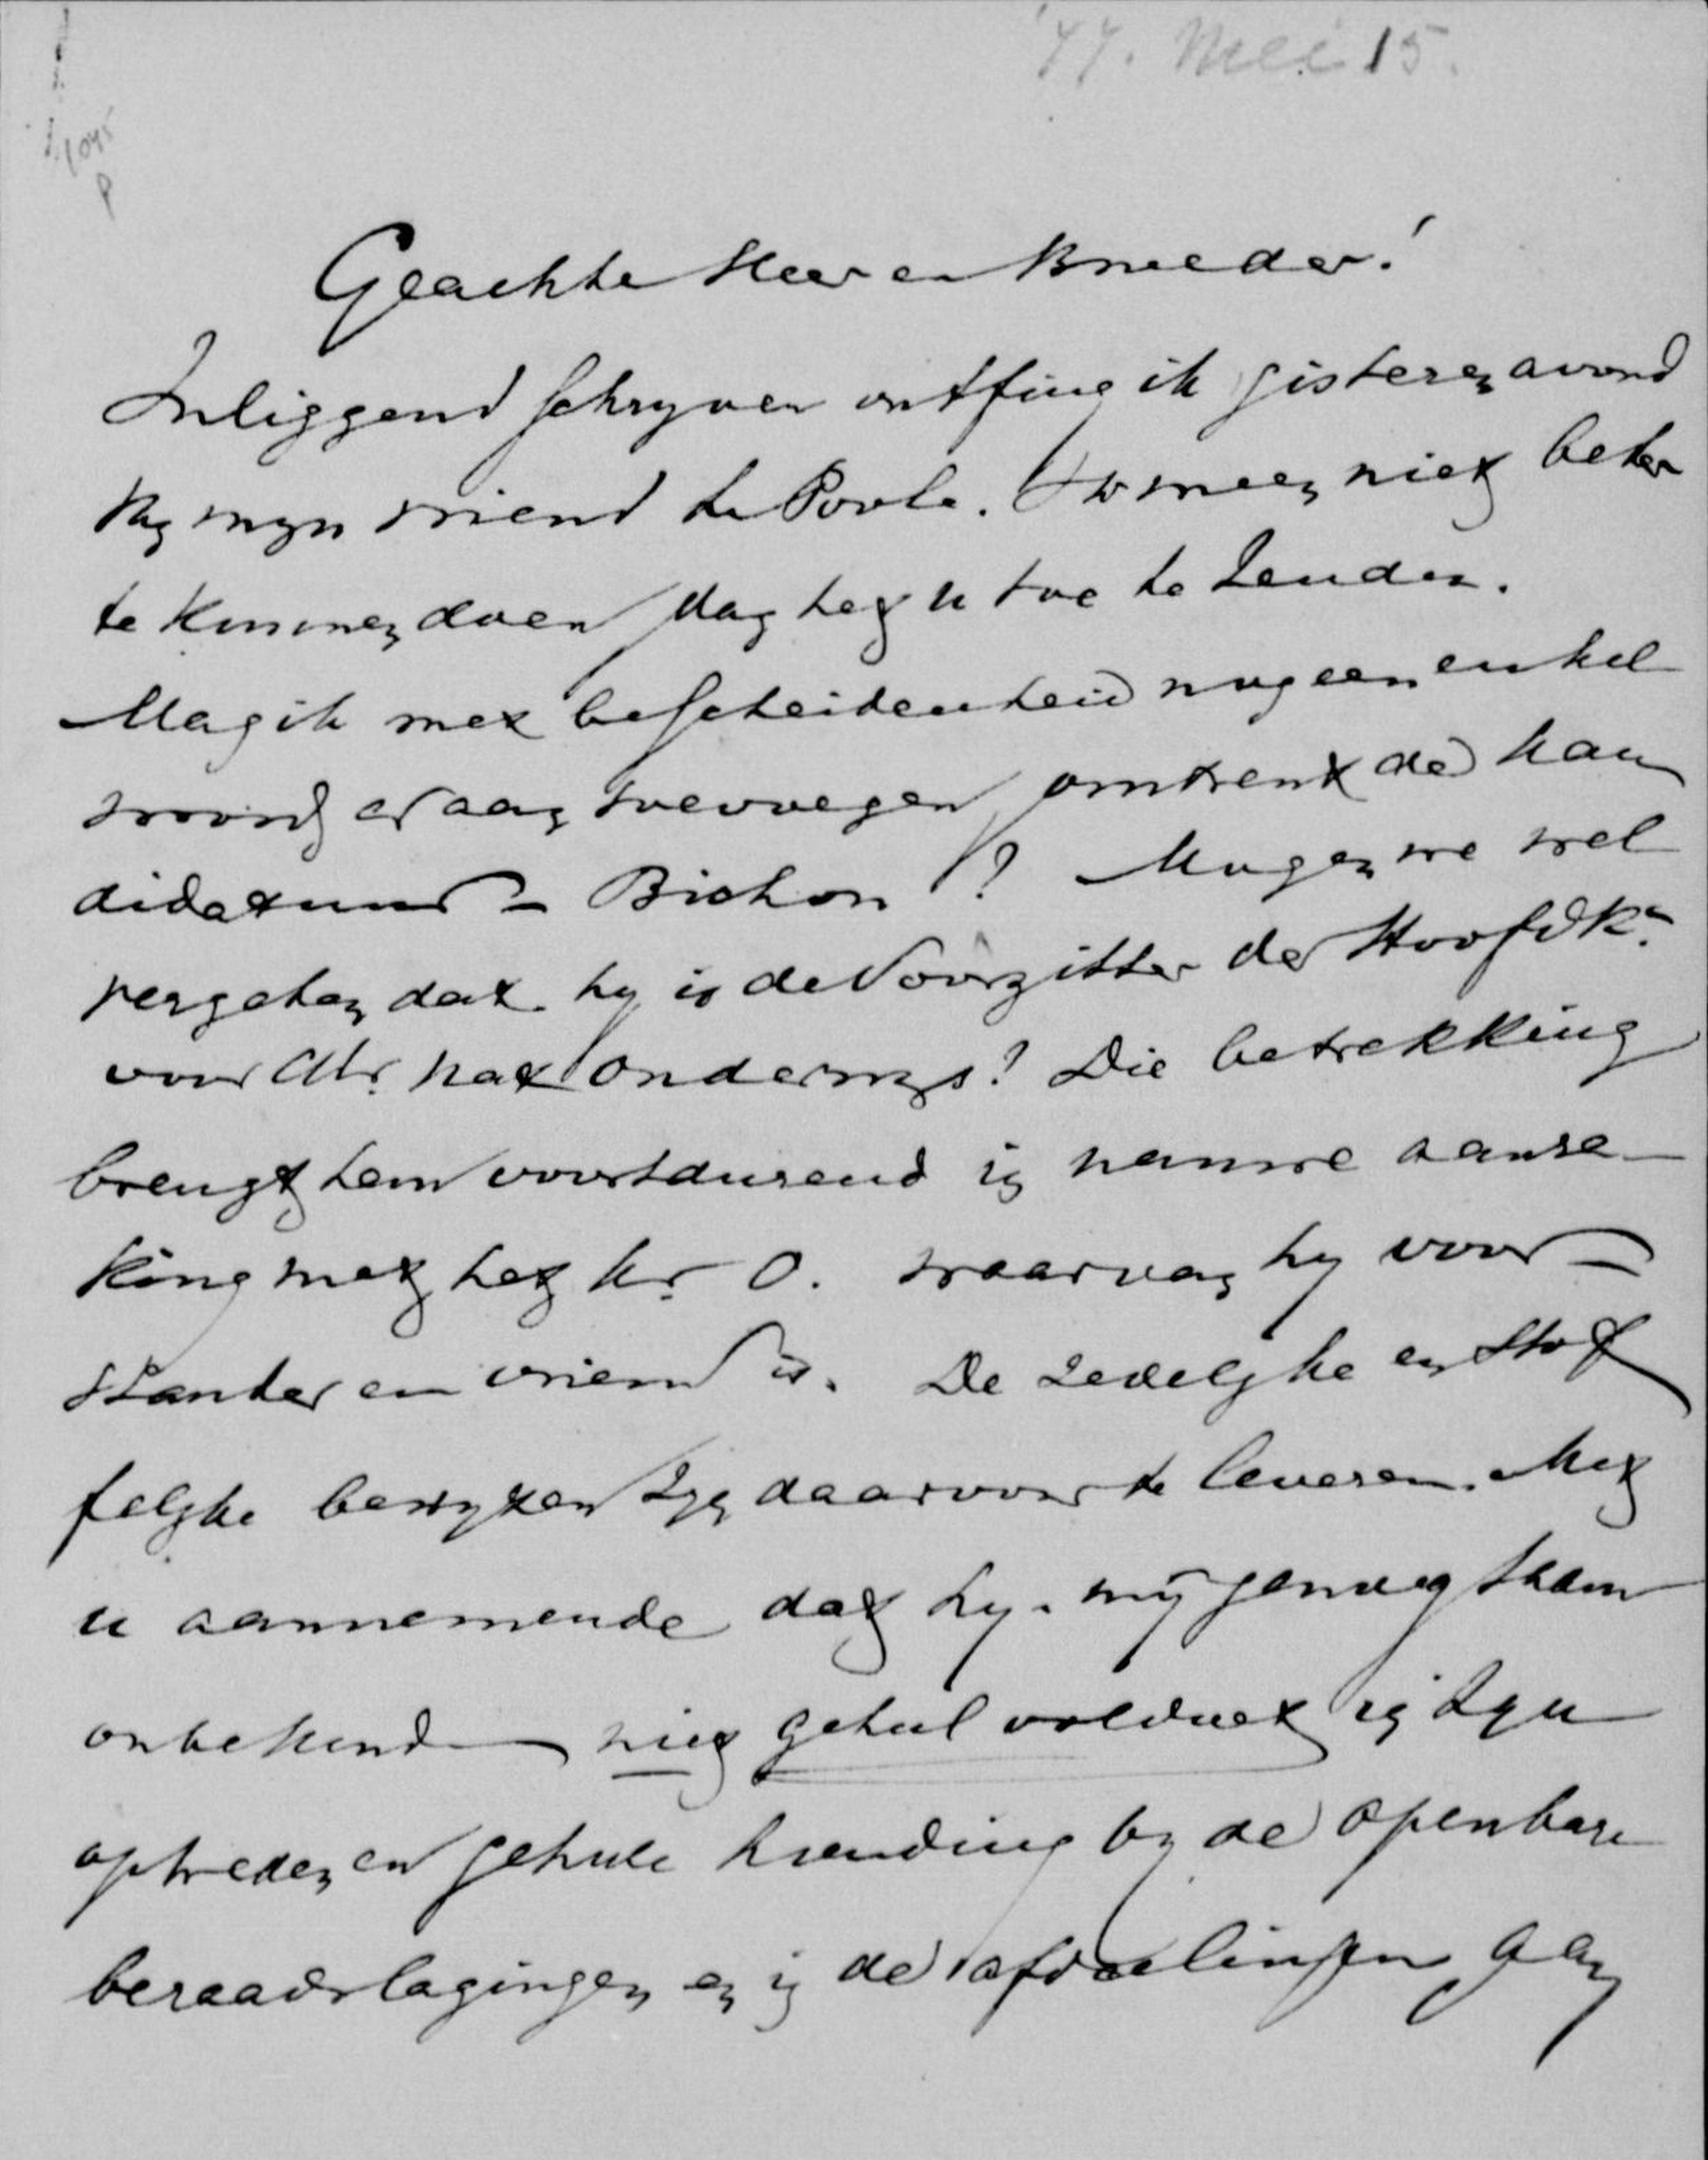 '77. Mei 15.
Geachte Heer en Broeder!
Inliggend schryven ontfing ik gisteren avond
van myn vriend te Poole. Ik meen niet beter
te kunnen doen dan het u toe te zenden.
Mag ik met bescheidenheid nog een enkel
woord er aan toevoegen omtrent de kan
didatuur - Bichon? Mogen we wel
vergeten dat hy is de Voorzitter der Hoofdk.
voor Chr. nat. onderwys? Die betrekking
brengt hem voortdurend in nauwe aanra-
king met het Chr. O. waarvan hy voor-
stander en vriend is. De zedelyke en stof
felyke bewyzen zyn daarvoor te leveren. Met
u aannemende dat hy - my genoegzaam
onbekend - niet geheel voldoet in zyn
optreden en geheele houding by de openbare
beraadslagingen en in de afdeelingen aan